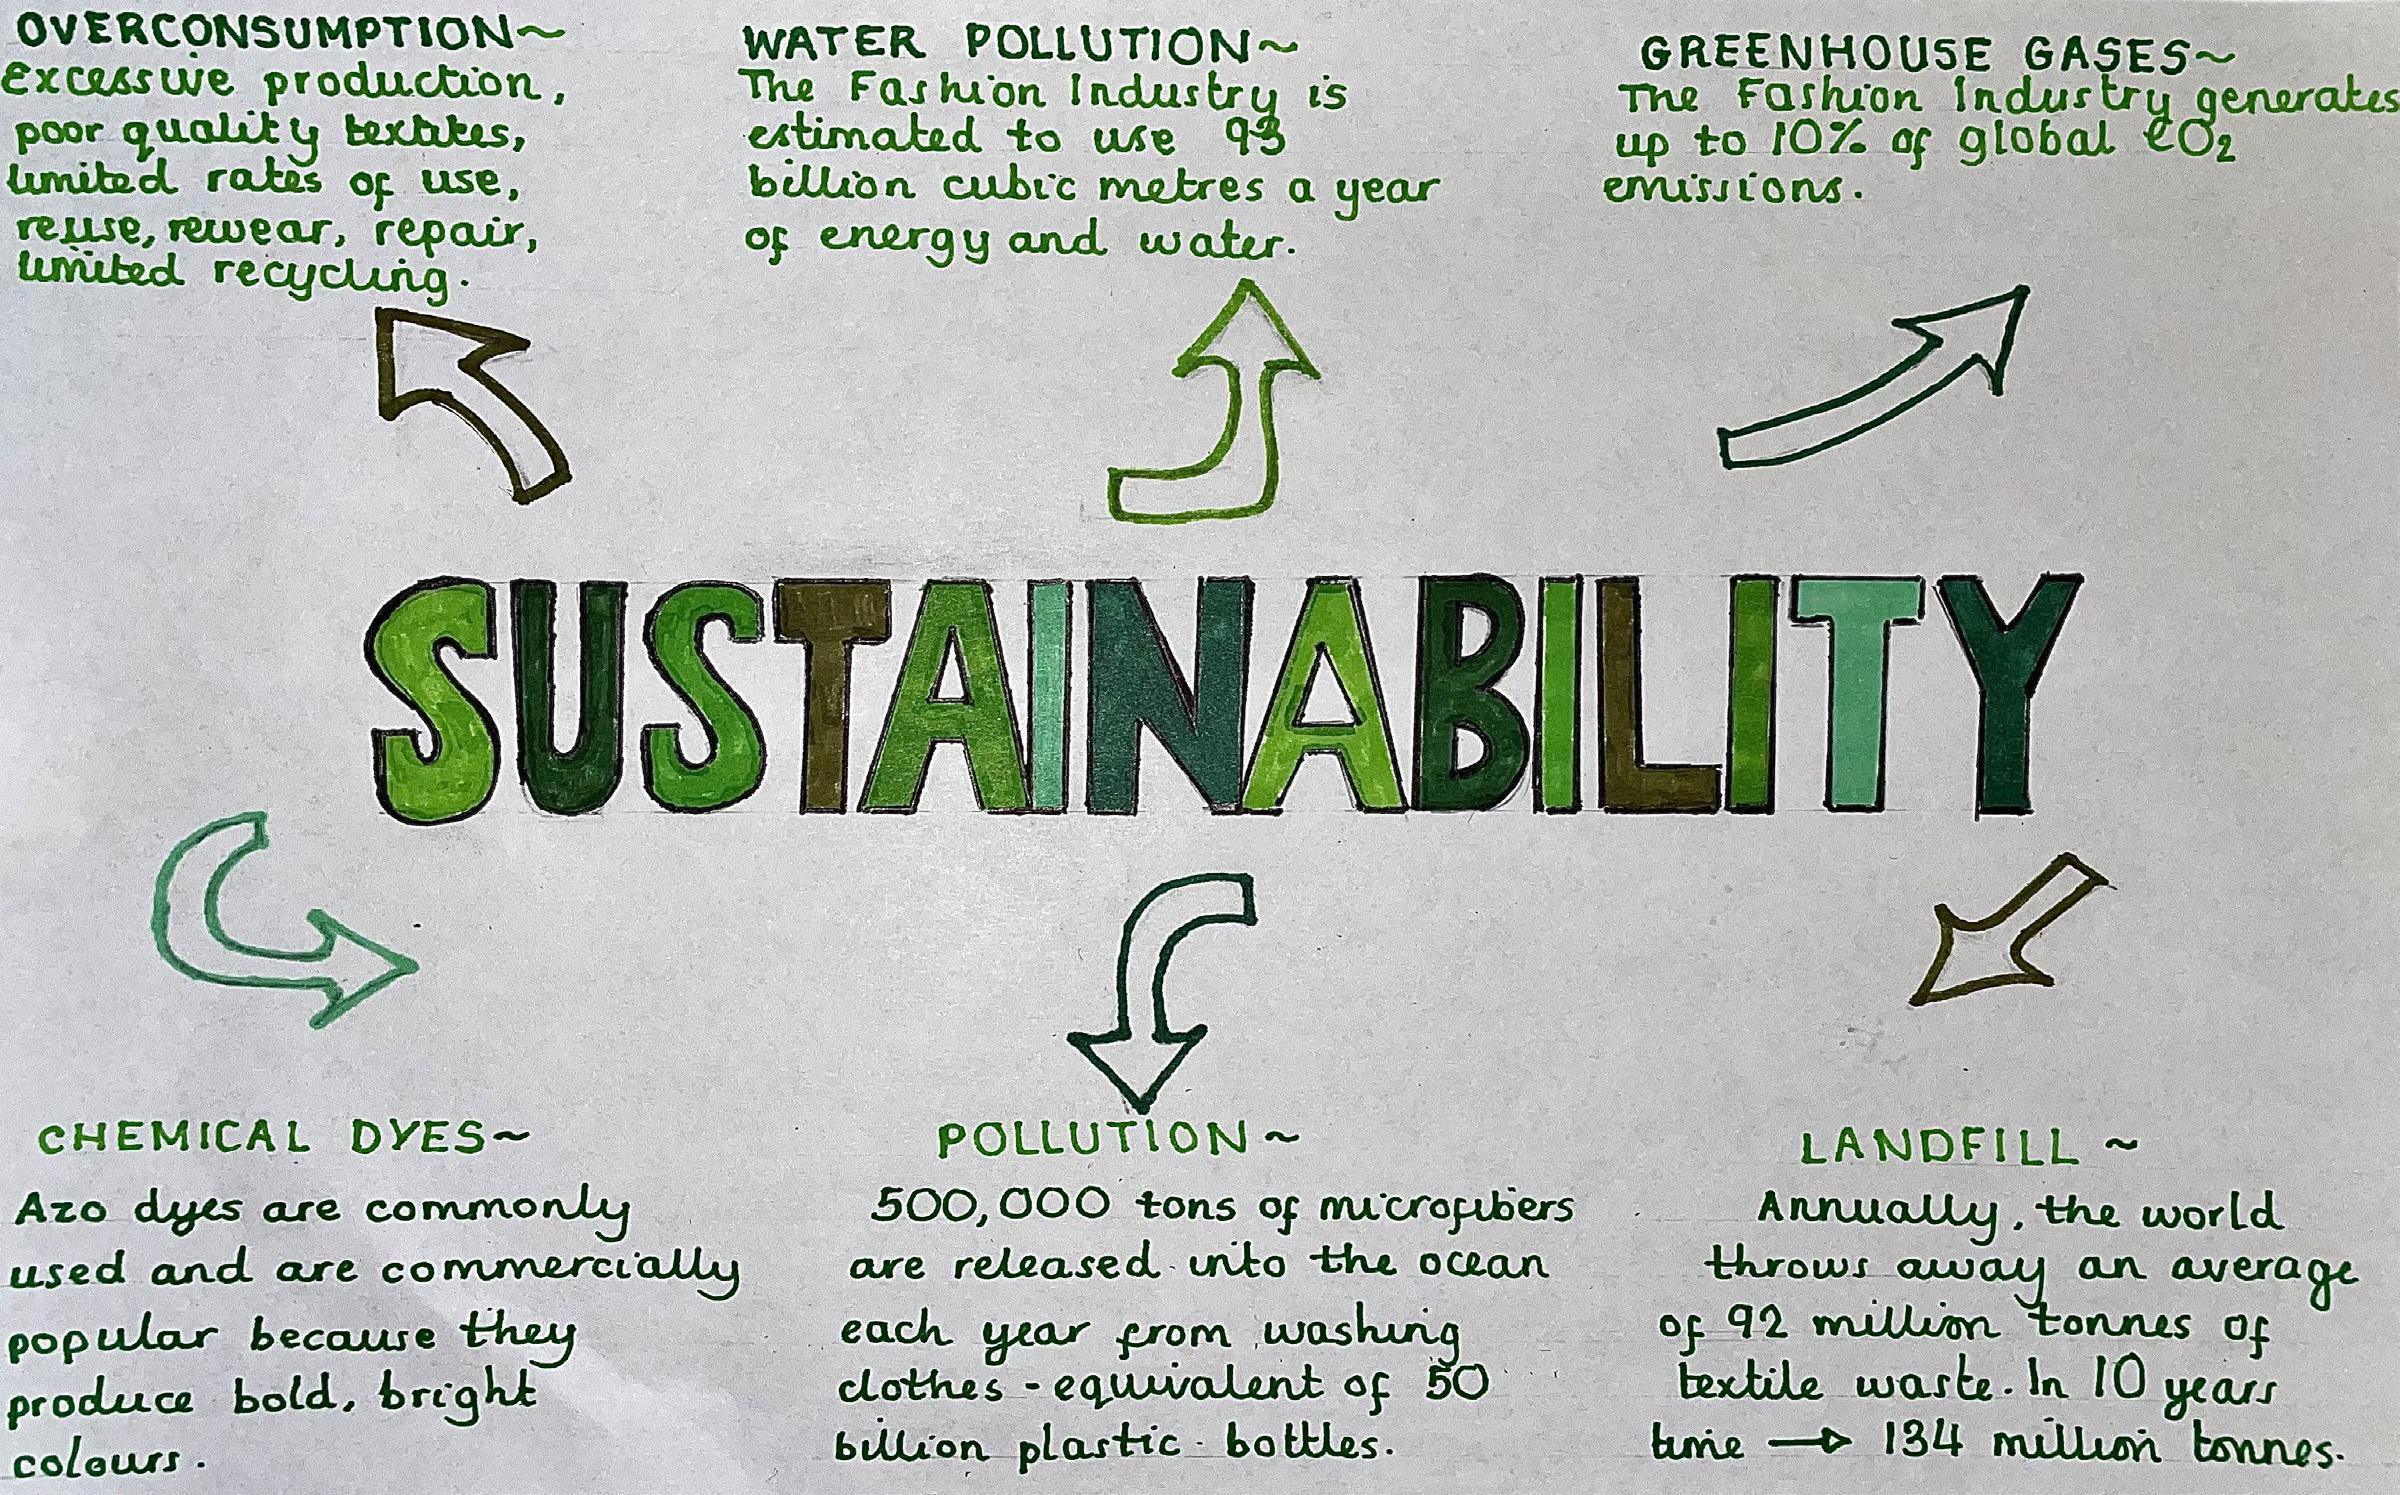 OVERCONSUMPTION~
Excessive production,
poor quality textiles,
limited rates of use,
reuse, rewear, repair,
limited recycling.
WATER POLLUTION~
The Fashion Industry is
estimated to use 93
billion cubic metres a year
of energy and water.
GREENHOUSE GASES~
The Fashion Industry generates
up to 10% of global CO2
emissions.
SUSTAINABILITY
CHEMICAL DYES~
Azo dyes are commonly
used and are commercially
popular because they
produce bold, bright
colours.
POLLUTION~
500,000 tons of microfibers
are released into the ocean
each year from washing
clothes - equivalent of 50
billion plastic bottles.
LANDFILL ~
Annually, the world
throws away an average
of 92 million tonnes of
textile waste. In 10 years
time → 134 million tonnes.